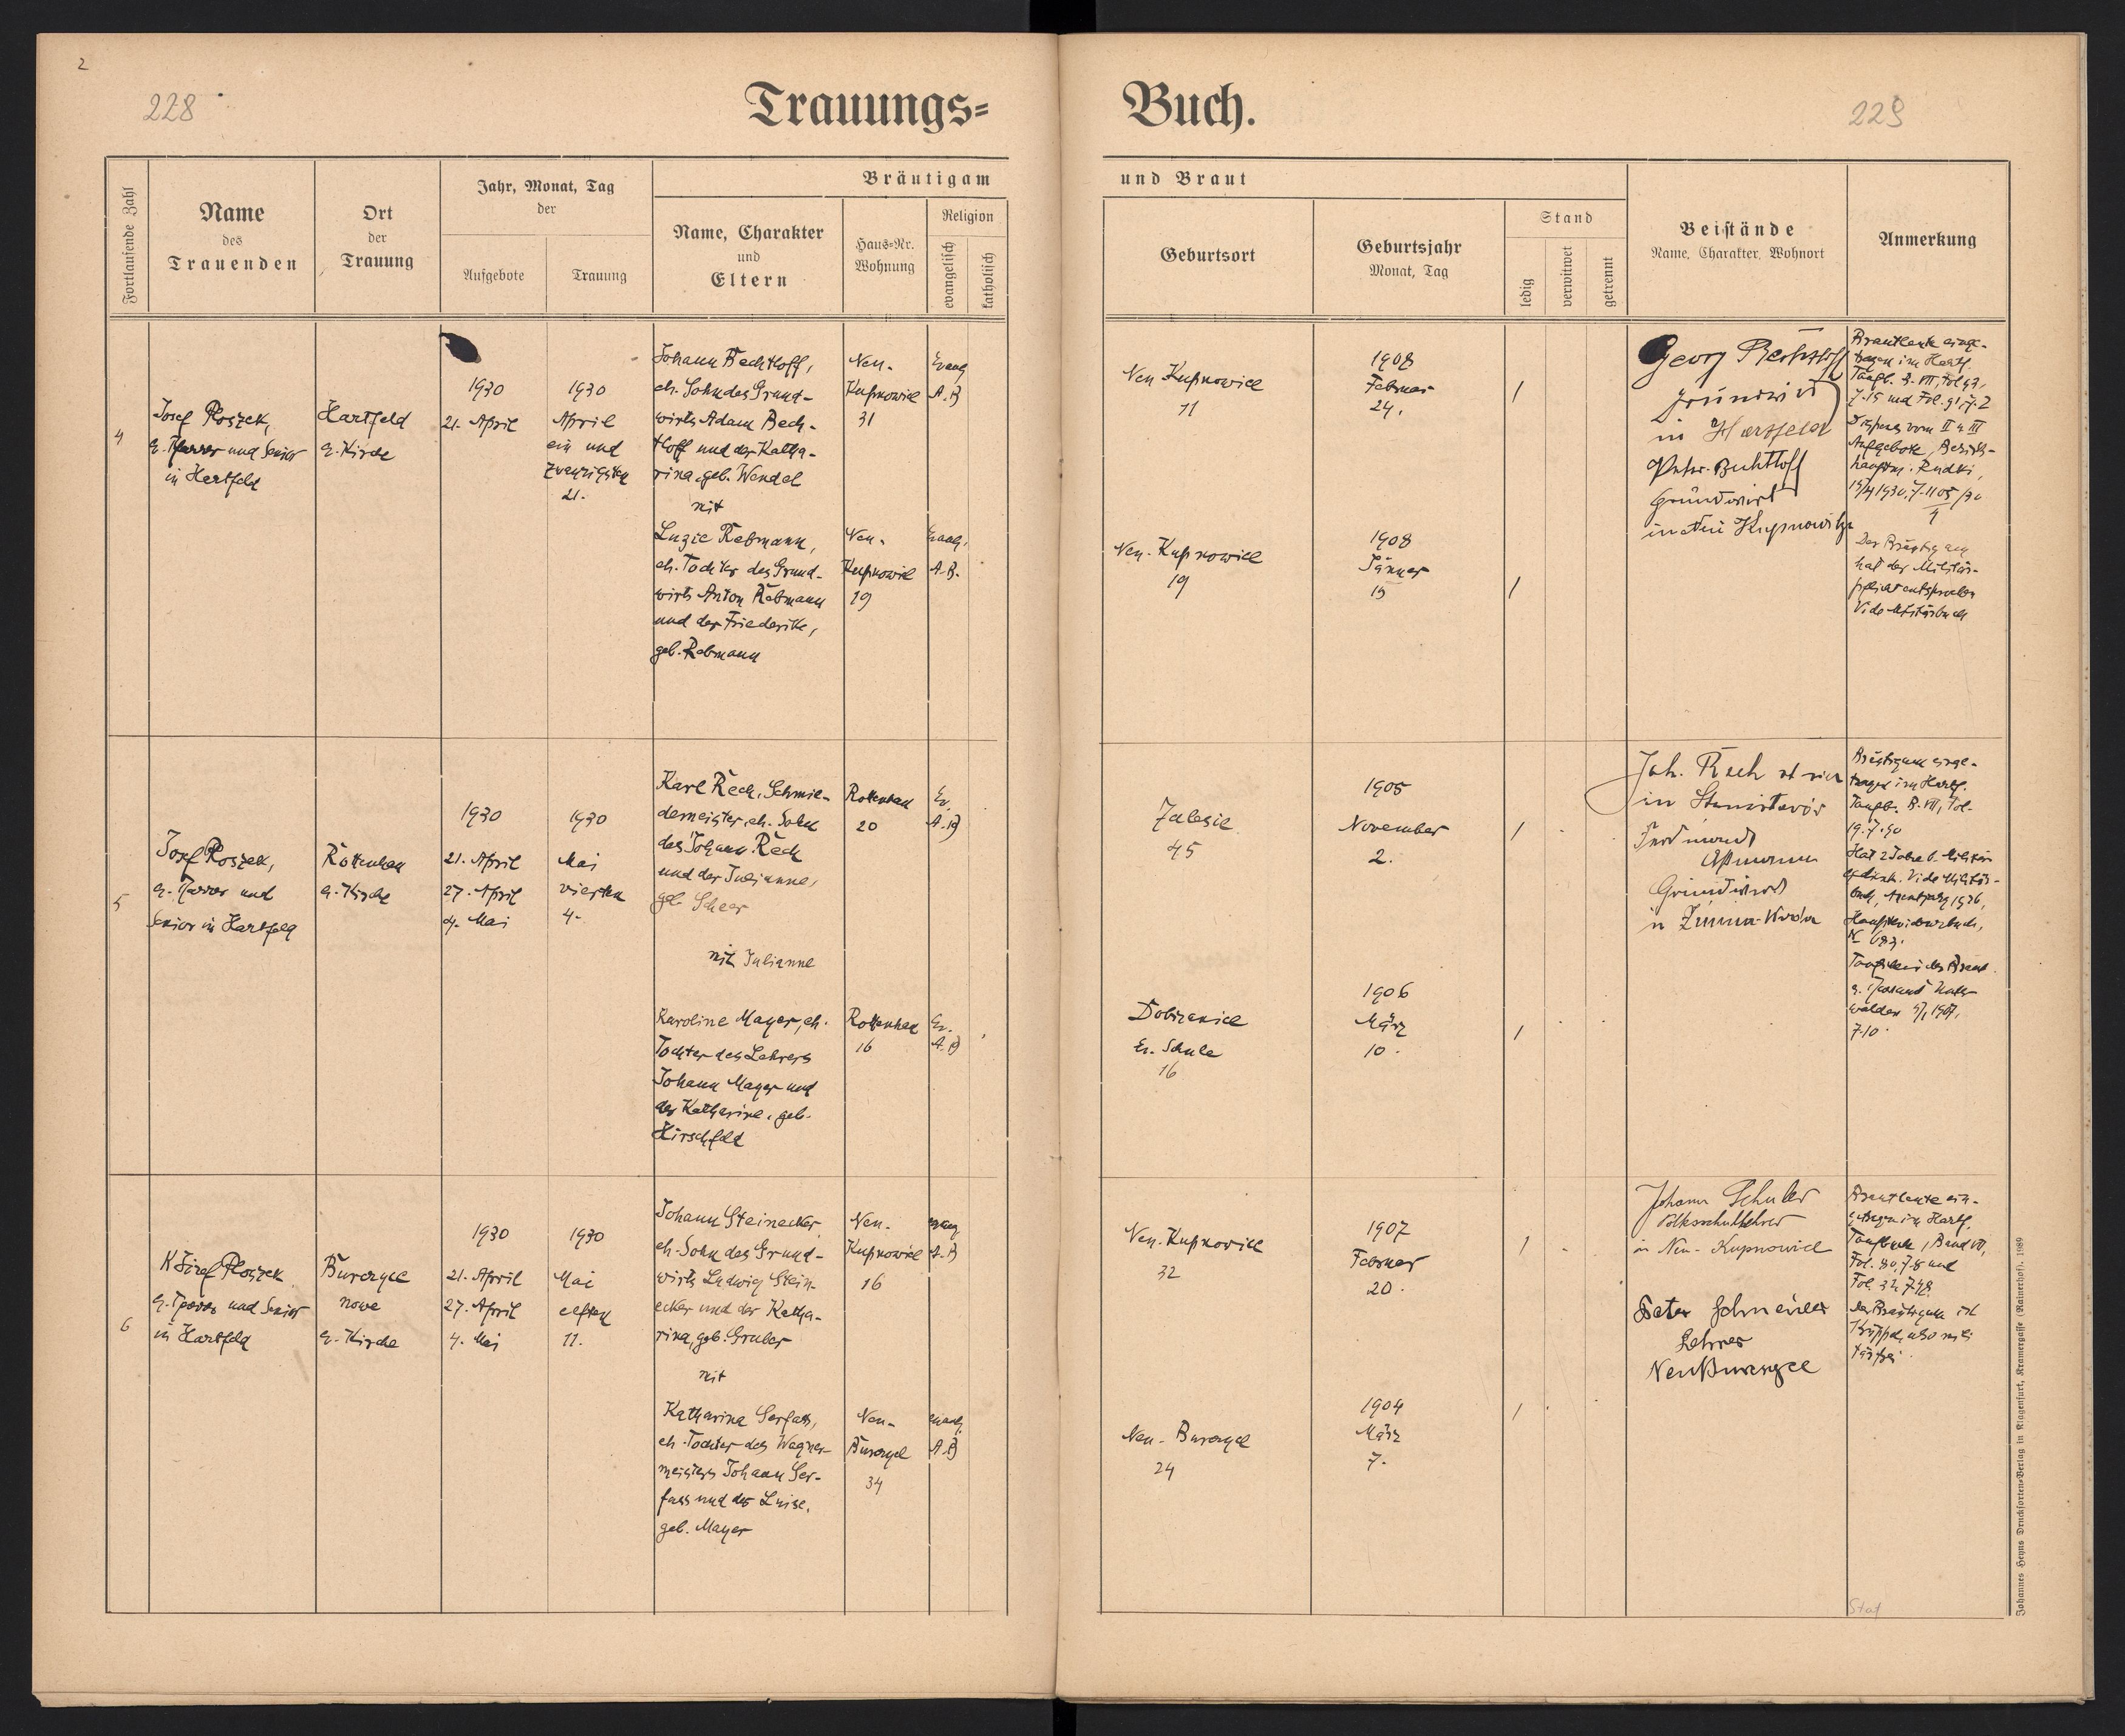 2
228
Trauungs=
Fortlaufende Zahl
Name
des
Trauenden
Ort
der
Trauung
Jahr, Monat, Tag
der
Aufgebote
Trauung
Bräutigam
Name, Charakter
und
Eltern
Haus=Nr.
Wohnung
Religion
evangelisch
katholisch
4
Josef Ploszek,
e. Pfarrer und Senior
in Hartfeld
Hartfeld
e. Kirche
1930
21. April
1930
April
ein und
zwanzigsten
21.
Johann Bechtloff,
eh. Sohn des Grund-
wirts Adam Bech-
tloff und der Katha-
rina, geb. Wendel
mit
Luzie Rebmann,
eh. Tochter des Grund-
wirts Anton Rebmann
und der Friederike,
geb. Rebmann
Neu-
Kupnowice
31
Neu-
Kupnowice
19
Evang
A.B
Evang.
A.B.
5
Josef Ploszek,
e. Pfarrer und
Senior in Hartfeld
Rottenhan
e. Kirche
1930
21. April
27. April
4. Mai
1930
Mai
vierten
4.
Karl Rech, Schmie-
demeister, eh. Sohn
des Johann Rech
und der Julianne,
geb. Scheer
mit Julianne
Karoline Mayer, eh.
Tochter des Lehrers
Johann Mayer und
der Katharine, geb.
Hirschfeld
Rottenhan
20
Rottenhan
16
Ev.
A.B
Ev.
A.B
6
Josef Ploszek
e. Pfarrer und Senior
in Hartfeld
Burczyce
nowe
e. Kirche
1930
21. April
27. April
4. Mai
1930
Mai
elften
11.
Johann Steinecker
eh. Sohn des Grund-
wirts Ludwig Stein-
ecker und der Katha-
rina, geb. Gruber
mit
Katharina Serfass,
eh. Tochter des Wagner-
meisters Johann Ser-
fass und der Luise,
geb. Mayer
Neu-
Kupnowice
16
Neu-
Burczyce
34
evang
A.B
evang.
A.B
Buch.
229
und Braut
Geburtsort
Geburtsjahr
Monat, Tag
Stand
ledig
verwitwet
getrennt
Beistände
Name, Charakter, Wohnort
Anmerkung
Neu Kupnowice
11
1908
Februar
24.
1
Neu-Kupnowice
19
1908
Jänner
15
1
Georg Bechtloff
Grundwirt
in Hartfeld
Peter Bechtloff
Grundwirt
in Neu Kupnowitze
Brautleute einge-
tragen im Hartf.
Taufb. B. VII, Fol 92,
Z. 15 und Fol. 91, Z. 2
Dispens vom II u III
Aufgebote, Bezirks-
hauptm. Rudki,
Der Bräutigam
hat der Militär-
pflicht entsprochen
Vide Militärbuch
Zalesie
45
1905
November
2.
1
Dobrzanice
Ev. Schule
16
1906
März
10.
1
Joh. Rech
in
Grundwirt
in Zimna-Woda
Bräutigam einge-
tragen im Hartf.
Taufb. B. VII, Fol.
19. Z. 90
Hat 2 Jahre b. Militär
gedient. Vide Militär-
Taufschein der Braut
Neu-Kupnowice
32
1907
Februar
20.
1
Neu-Burczyce
24
1904
März
7.
1
Johann Schuler
Volksschullehrer
in Neu-Kupnowice
Peter Schneider
Lehrer
Neu Burczyce
Brautleute ein-
getragen im Hartf.
Taufbuch, Band VII,
Fol. 80, Z. 8 und
Der Bräutigam ist
Krüppel, also mili
tärfrei.
Stat
Johannes Heyns Drucksorten=Verlag in Klagenfurt, Kramergasse (Rainerhof). 1989